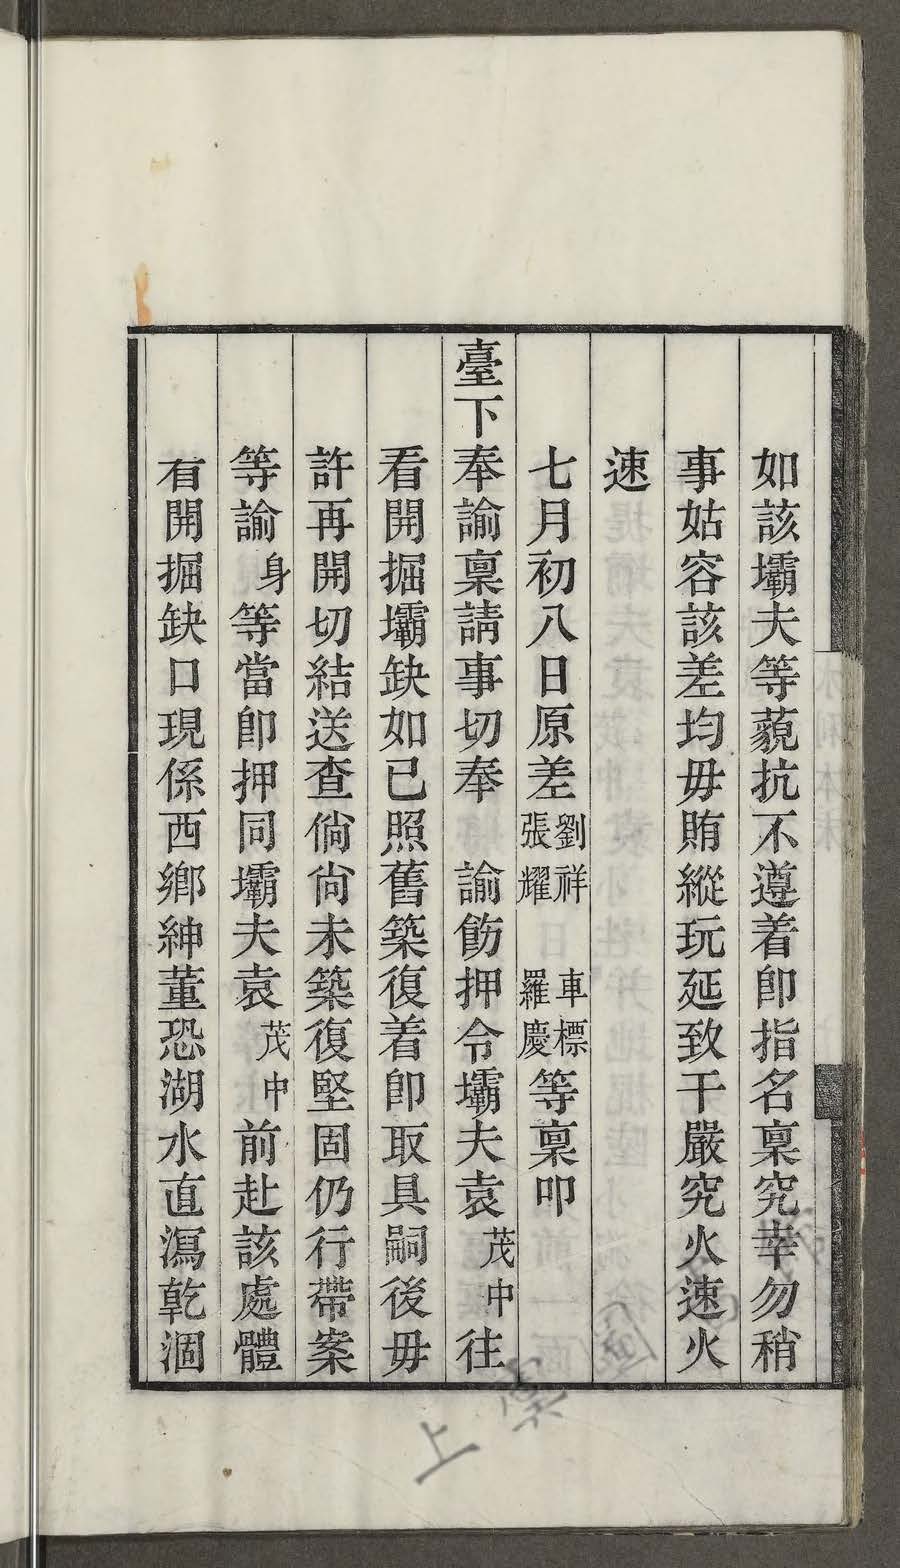 如該壩夫等藐抗不遵着即指名稟究幸勿稍
事姑容該差均毋賄縱玩延致干嚴究火速火
速
七月初八日原差劉祥張耀　車標羅慶等稟叩
臺下奉諭稟請事切奉　諭飭押令壩夫袁茂中往
看開掘壩缺如已照舊築復着即取具嗣後毋
許再開切結送查倘尙未築復堅固仍行帶案
等諭身等當即押同壩夫袁茂中前赴該處體
看開掘缺口現係西鄉紳董恐湖水直瀉乾涸